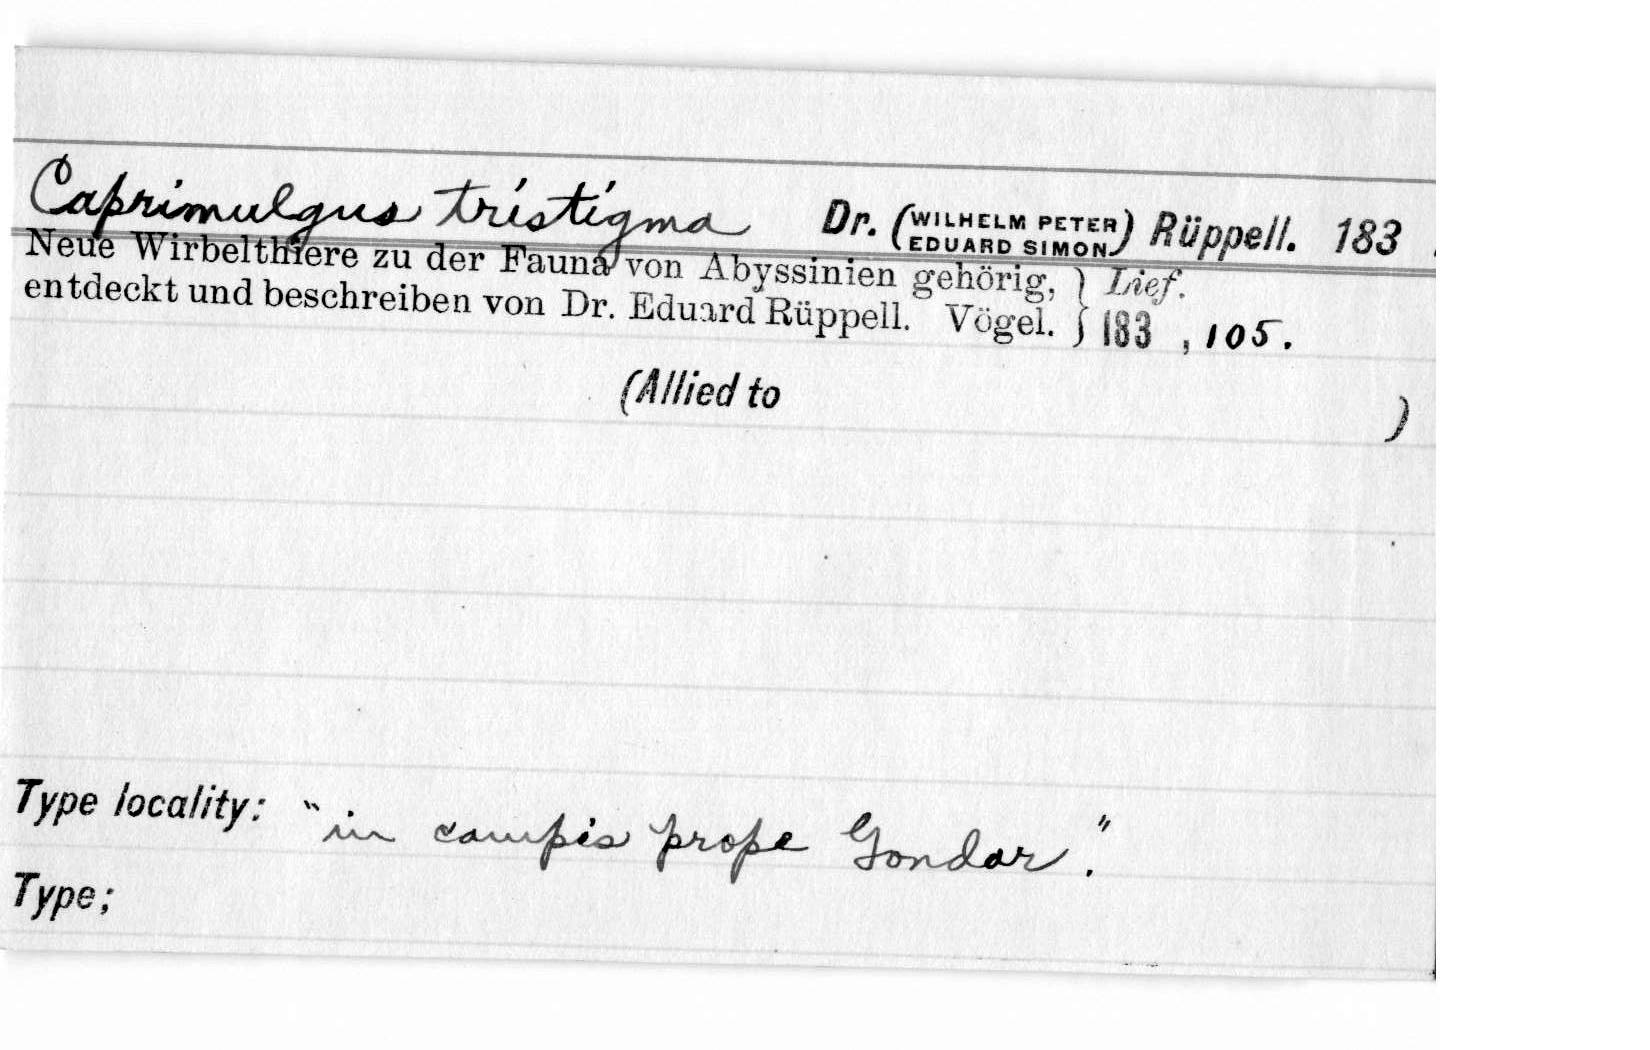 Caprimulgus tristigma Dr. (WILHELM PETER EDUARD SIMON) Rüppell. 183 .
Neue Wirbelthiere zu der Fauna von Abyssinien gehörig, } Lief.
entdeckt und beschreiben von Dr. Eduard Rüppell. Vögel. } 183 , 105.
(Allied to )
Type locality: "in campis prope Gondar."
Type;